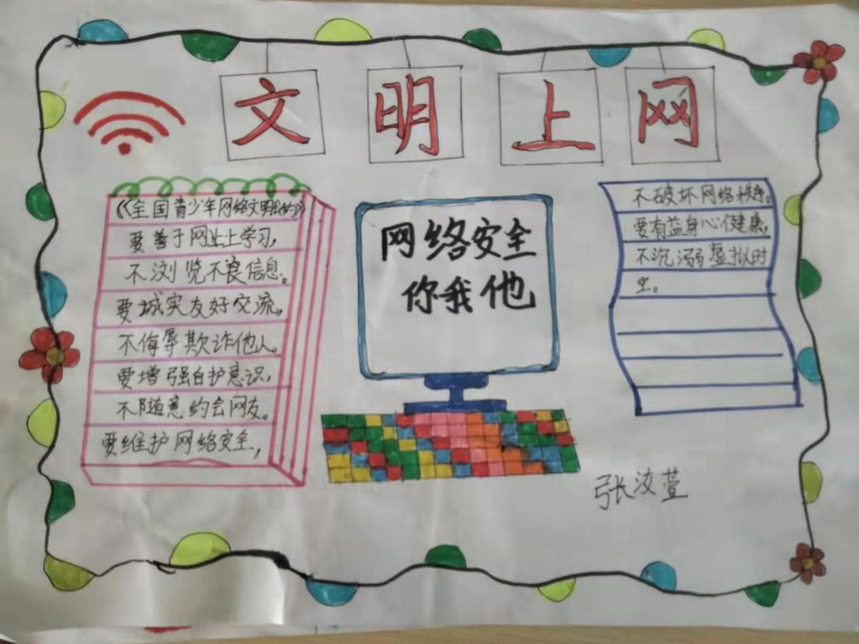 文明上网
《全国青少年网络文明公约》
要善于网上学习,
不浏览不良信息。
要诚实友好交流,
不侮辱欺诈他人。
要增强自护意识,
不随意约会网友。
要维护网络安全,
网络安全
你我他
不破坏网络秩序。
要有益身心健康,
不沉溺虚拟时
空。
张汝萱